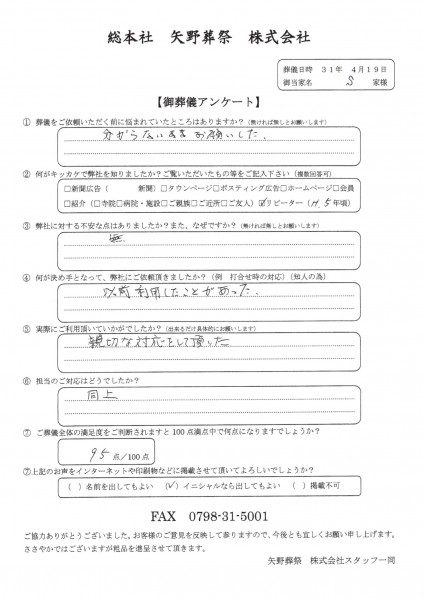 総本社　矢野葬祭　株式会社
葬儀日時　３１年　４月１９日
御当家名　S　家様
【御葬儀アンケート】
① 葬儀をご依頼いただく前に悩まれていたところはありますか？（無ければ無しとお願いします）
分からないままお願いした、
② 何がキッカケで弊社を知りましたか？ご覧いただいたもの等をご記入下さい（複数回答可）
□新聞広告（　　　新聞）□タウンページ□ポスティング広告□ホームページ□会員
□紹介（□寺院□病院・施設□ご親族□ご近所□ご友人）☑リピーター（H 5年頃）
③ 弊社に対する不安な点はありますか？また、なぜですか？（無ければ無しとお願いします）
無
④ 何が決め手となって、弊社にご依頼頂きましたか？（例　打合せ時の対応）（知人の為）
以前利用したことがあった、
⑤ 実際にご利用頂いていかがでしたか？（出来るだけ具体的にお願いします）
親切な対応をして頂いた
⑥ 担当のご対応はどうでしたか？
同上
⑦ ご葬儀全体の満足度をご判断されますと100点満点中で何点になりますでしょうか？
95 点/100点
⑦上記のお声をインターネットや印刷物などに掲載させて頂いてよろしいでしょうか？
（ ）名前を出してもよい　（✓）イニシャルなら出してもよい　（ ）掲載不可
FAX　0798-31-5001
ご協力ありがとうございました。お客様のご意見を反映して参りますので、今後とも宜しくお願い申し上げます。
ささやかではございますが粗品を進呈させて頂きます。
矢野葬祭　株式会社スタッフ一同